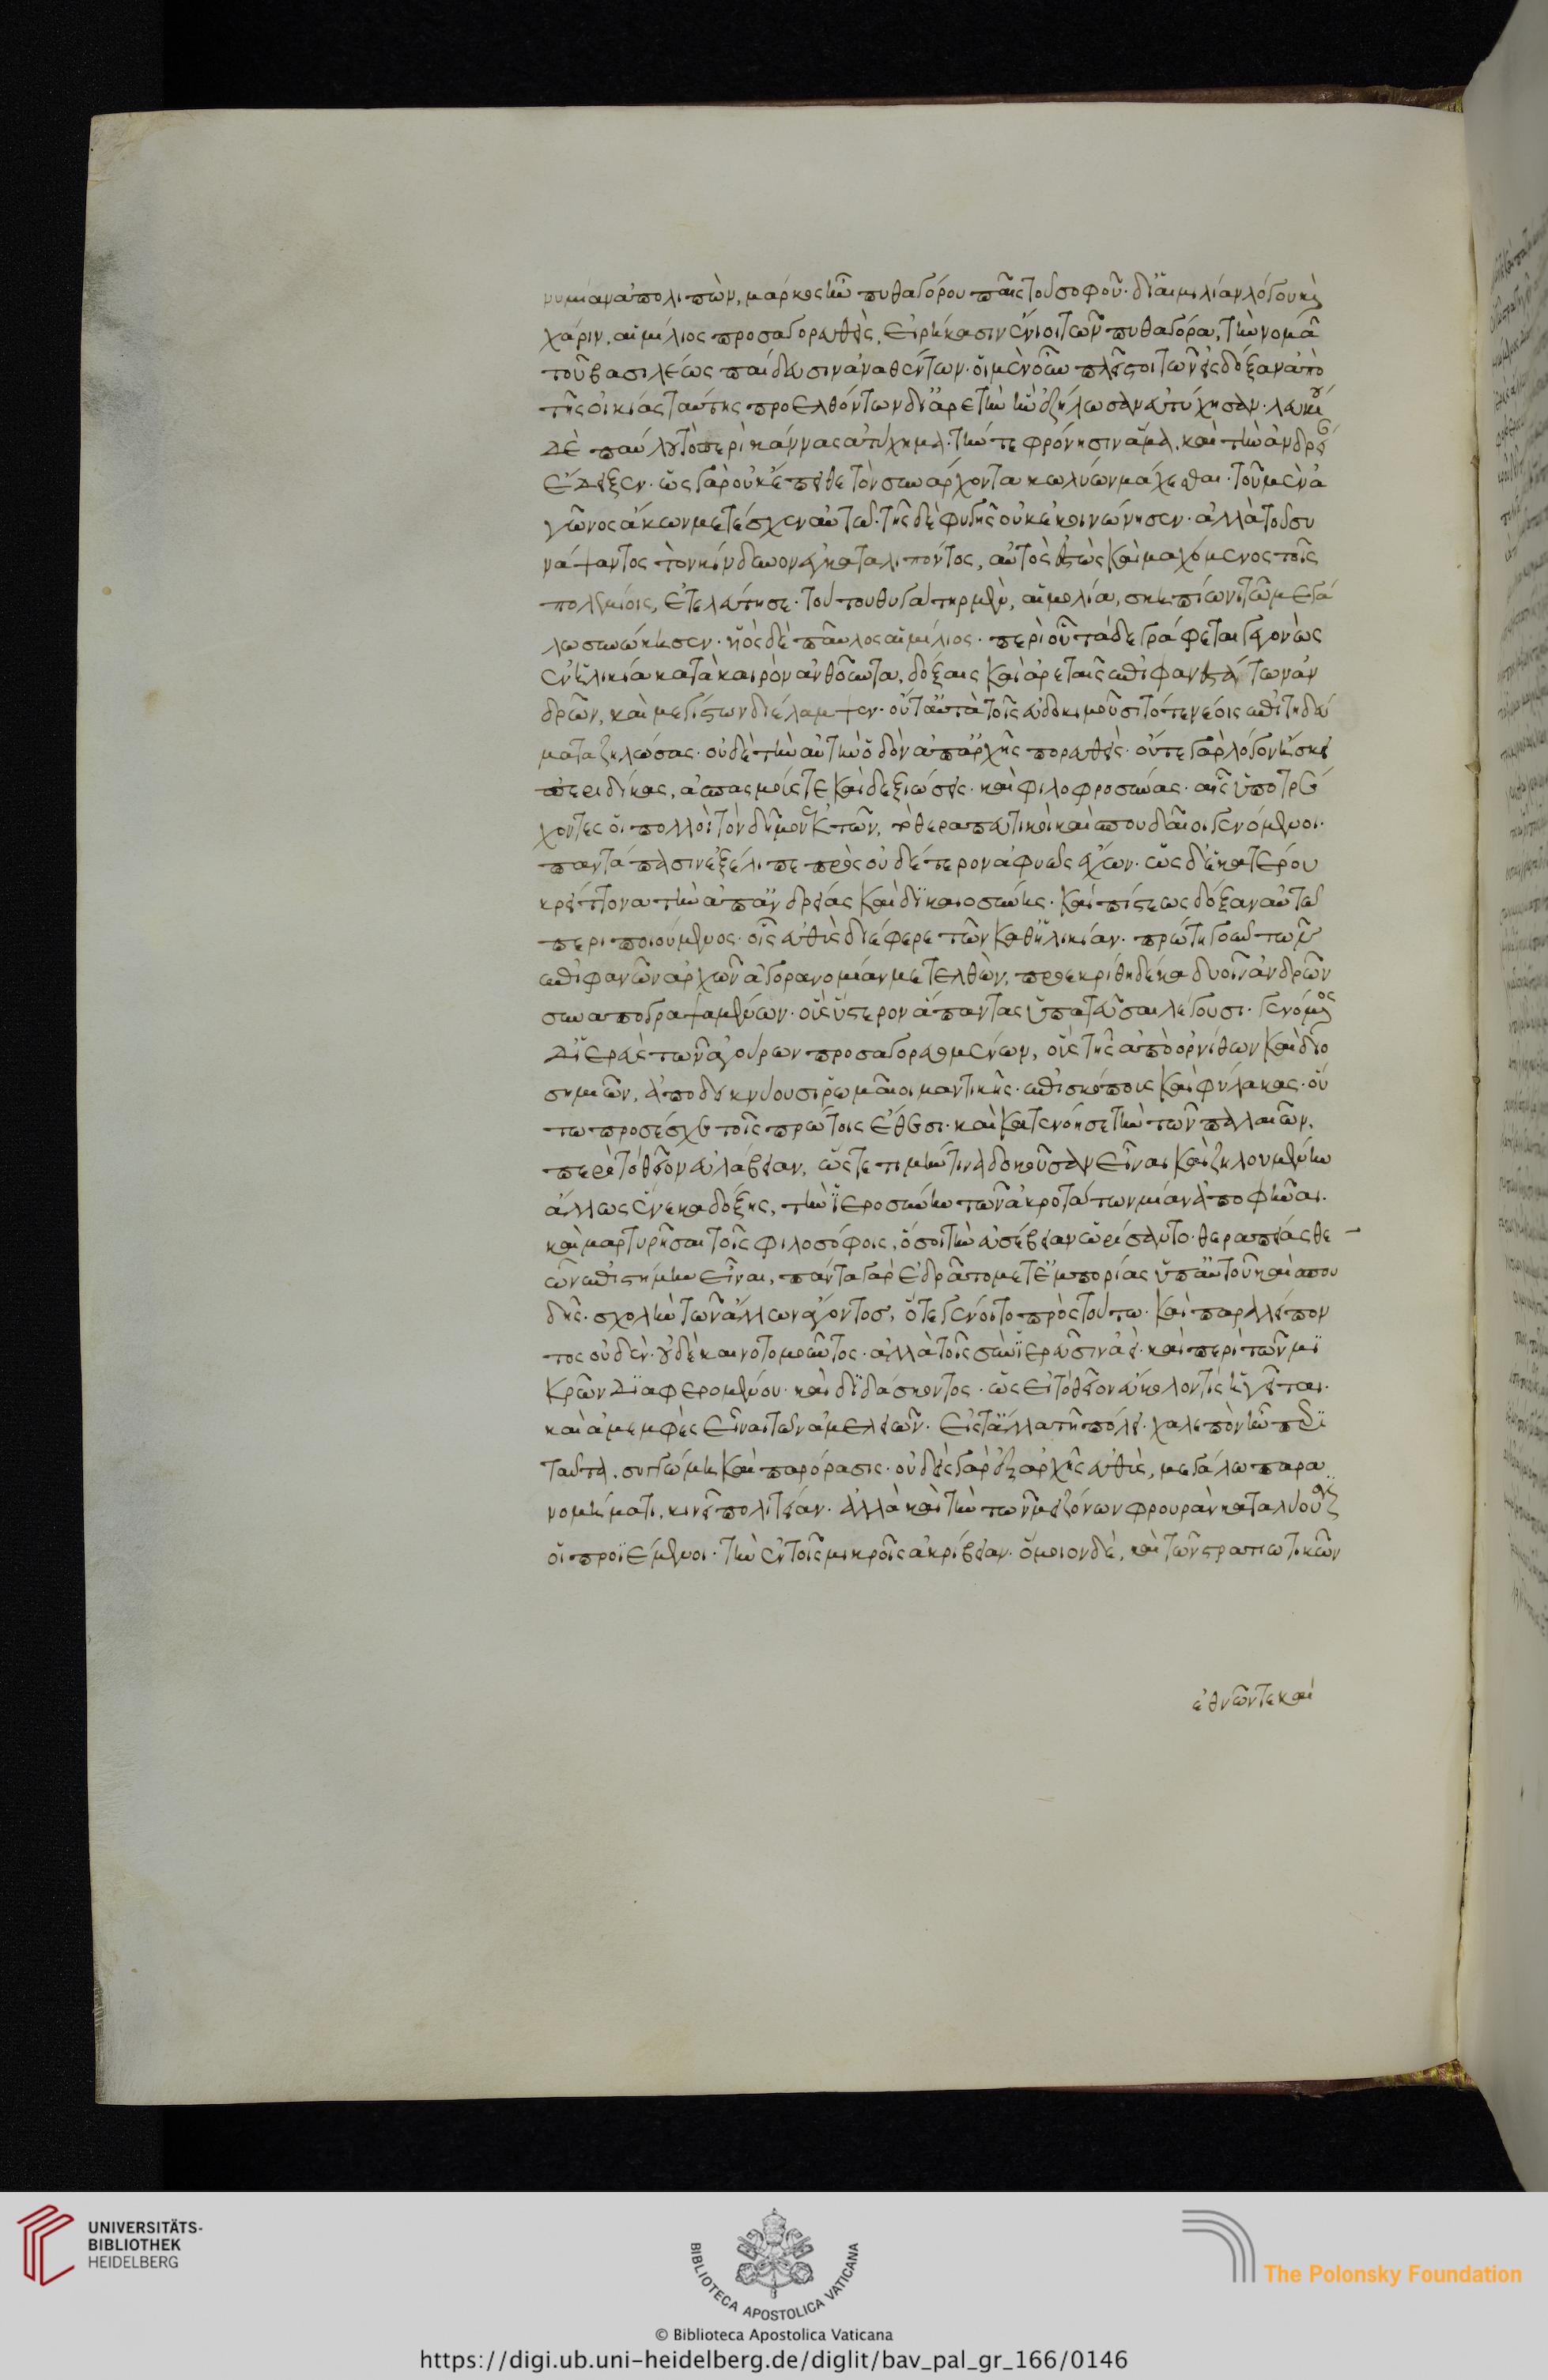 νυμίαν ἀπολιπὼν, μάρκος ἦν πυθαγόρου παῖς τοῦ σοφοῦ· δι' αἱμυλίαν λόγου καὶ
χάριν, αἰμίλιος προσαγορευθεὶς, εἰρήκασιν ἔνιοι τῶν πυθαγόρα, τὴν νομᾶ
τοῦ βασιλέως παίδευσιν ἀναθέντων· οἱ μὲν οὖν πλεῖστοι τῶν εἰς δόξαν ἀπὸ
τῆς οἰκίας ταύτης προελθόντων δι' ἀρετὴν ἣν ἐζήλωσαν εὐτύχησαν· λευκίου
δὲ παύλου τὸ περὶ κάννας ἀτύχημα· τήν τε φρόνησιν ἅμα, καὶ τὴν ἀνδρεί
ἔδειξεν· ὡς γὰρ οὐκ ἔπειθε τὸν συνάρχοντα κωλύων μάχεσθαι· τοῦ μὲν ἀ
γῶνος ἄκων μετέσχεν αὐτῷ· τῆς δὲ φυγῆς οὐκ ἐκοινώνησεν· ἀλλὰ τοῦ συ
νάψαντος τὸν κίνδυνον ἐγκαταλιπόντος, αὐτὸς ἑστὼς καὶ μαχόμενος τοῖς
πολεμίοις, ἐτελεύτησε· τούτου θυγάτηρ μὲν, αἰμιλία, σκηπίωνι τῷ μεγά
λῳ συνῴκησεν· υἱὸς δὲ παῦλος αἰμίλιος· περὶ οὗ τάδε γράφεται γεγονὼς
ἐν ἡλικίᾳ κατὰ καιρὸν ἀνθοῦντα, δόξαις καὶ ἀρεταῖς ἐπιφανεστάτων ἀν
δρῶν, καὶ μεγίστων διέλαμψεν· οὐ ταὐτὰ τοῖς εὐδοκιμοῦσι τότε νέοις ἐπιτηδεύ
ματα ζηλώσας· οὐδὲ τὴν αὐτὴν ὁδὸν ἀπ' ἀρχῆς πορευθείς· οὔτε γὰρ λόγον ἤσκει
περὶ δίκας, ἀσπασμούς τε καὶ δεξιώσεις· καὶ φιλοφροσύνας· αἷς ὑποτρέ
χοντες οἱ πολλοὶ τὸν δῆμον ἐκτῶντο, θεραπευτικοὶ καὶ σπουδαῖοι γενόμενοι·
παντάπασιν ἐξέλιπε πρὸς οὐδέτερον ἀφυῶς ἔχων· ὡς δ' ἑκατέρου
κρείττονα τὴν ἀπ' ἀνδρείας καὶ δικαιοσύνης· καὶ πίστεως δόξαν αὐτῷ
περιποιούμενος· οἷς εὐθὺς διέφερε τῶν καθ' ἡλικίαν· πρώτην γοῦν τῶν
ἐπιφανῶν ἀρχῶν ἀγορανομίαν μετελθὼν, προεκρίθη δέκα δυοῖν ἀνδρῶν
συναπογραψαμένων· οὓς ὕστερον ἅπαντας ὑπατεῦσαι λέγουσι· γενόμενος
δ' ἱερεὺς τῶν αὐγούρων προσαγορευομένων, οὓς τῆς ἀπὸ ὀρνίθων καὶ διο
σημειῶν, ἀποδεικνύουσι ῥωμαῖοι μαντικῆς· ἐπισκόπους καὶ φύλακας· οὕ
τω προσέσχε τοῖς πρώτοις ἔθεσι· καὶ κατενόησε τὴν τῶν παλαιῶν,
περὶ τὸ θεῖον εὐλάβειαν, ὥστε τιμήν τινα δοκοῦσαν εἶναι καὶ ζηλουμένην
ἄλλως ἕνεκα δόξης, τὴν ἱεροσύνην τῶν ἀκροτάτων μίαν ἀποφῆναι·
καὶ μαρτυρῆσαι τοῖς φιλοσόφοις, ὅσοι τὴν εὐσέβειαν ὡρίσαντο· θεραπείας θε
ῶν ἐπιστήμην εἶναι, πάντα γὰρ ἐδρᾶτο μετ' ἐμπορίας ὑπ' αὐτοῦ καὶ σπου
δῆς· σχολὴν τῶν ἄλλων ἄγοντος, ὅτε γένοιτο πρὸς τούτῳ· καὶ παραλείπον
τος οὐδέν· οὐδὲ καινοτομοῦντος· ἀλλὰ τοῖς συνιερεῦσιν ἀεὶ· καὶ περὶ τῶν μι
κρῶν διαφερομένου· καὶ διδάσκοντος· ὡς εἰ τὸ θεῖον εὔκολόν τις ἡγεῖται·
καὶ ἀμεμφὲς εἶναι τῶν ἀμελειῶν· εἰς τἄλλα τῇ πόλει· χαλεπὸν ἡ περὶ
ταῦτα, συγγνώμη καὶ παρόρασις· οὐδεὶς γὰρ ἐξ ἀρχῆς εὐθὺς, μεγάλῳ παρα
νομήματι, κινεῖ πολιτείαν· ἀλλὰ καὶ τὴν τῶν μειζόνων φρουρὰν καταλύουσιν
οἱ προϊέμενοι· τὴν ἐν τοῖς μικροῖς ἀκρίβειαν· ὅμοιον δὲ, καὶ τῶν στρατιωτικῶν
ἐθνῶν τε καὶ
UNIVERSITÄTS-
BIBLIOTHEK
HEIDELBERG
BIBLIOTECA APOSTOLICA VATICANA
© Biblioteca Apostolica Vaticana
The Polonsky Foundation
https://digi.ub.uni-heidelberg.de/diglit/bav_pal_gr_166/0146